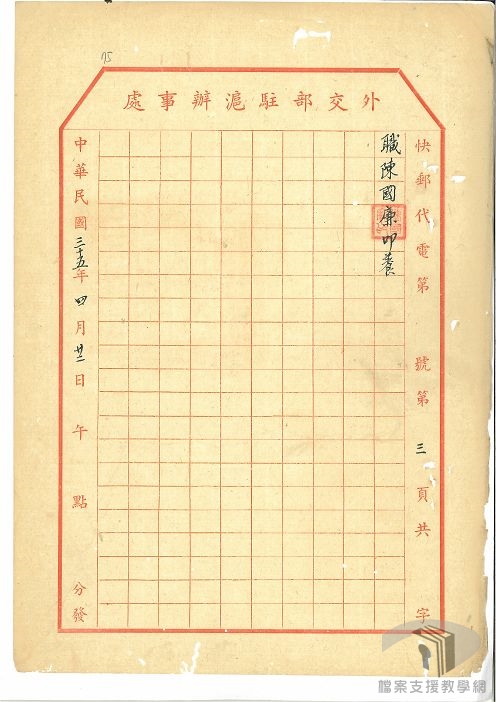 75
外交部駐滬辦事處
快郵代電第 號第三頁共 字
職陳國廉叩養
中華民國三十五年四月廿二日 午 點 分發
檔案支援教學網